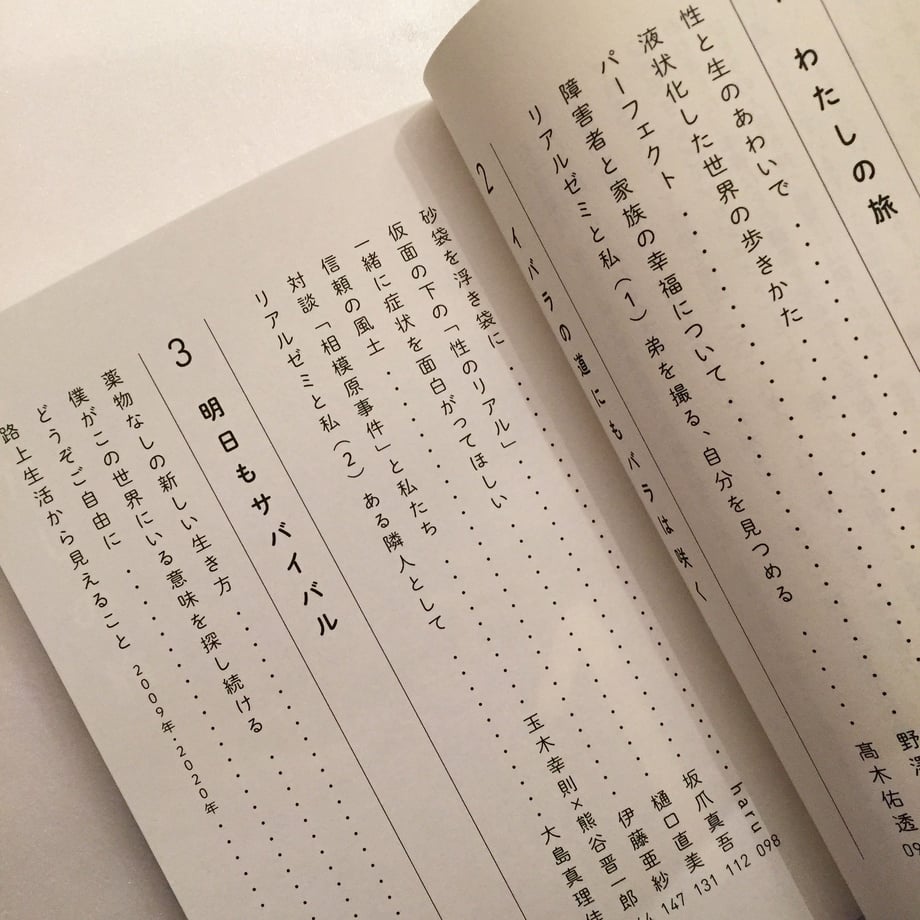 わたしの旅
性と生のあわいで
液状化した世界の歩きかた
パーフェクト
障害者と家族の幸福について
リアルゼミと私（1） 弟を撮る、自分を見つめる
髙木佑透
2 イバラの道にもバラは咲く
砂袋を浮き袋に haru 098
仮面の下の「性のリアル」 坂爪真吾 112
一緒に症状を面白がってほしい 樋口直美 131
信頼の風土 伊藤亜紗 147
対談「相模原事件」と私たち 玉木幸則×熊谷晋一郎
リアルゼミと私（2） ある隣人として 大島真理
3 明日もサバイバル
薬物なしの新しい生き方
僕がこの世界にいる意味を探し続ける
どうぞご自由に
路上生活から見えること 2009年・2020年